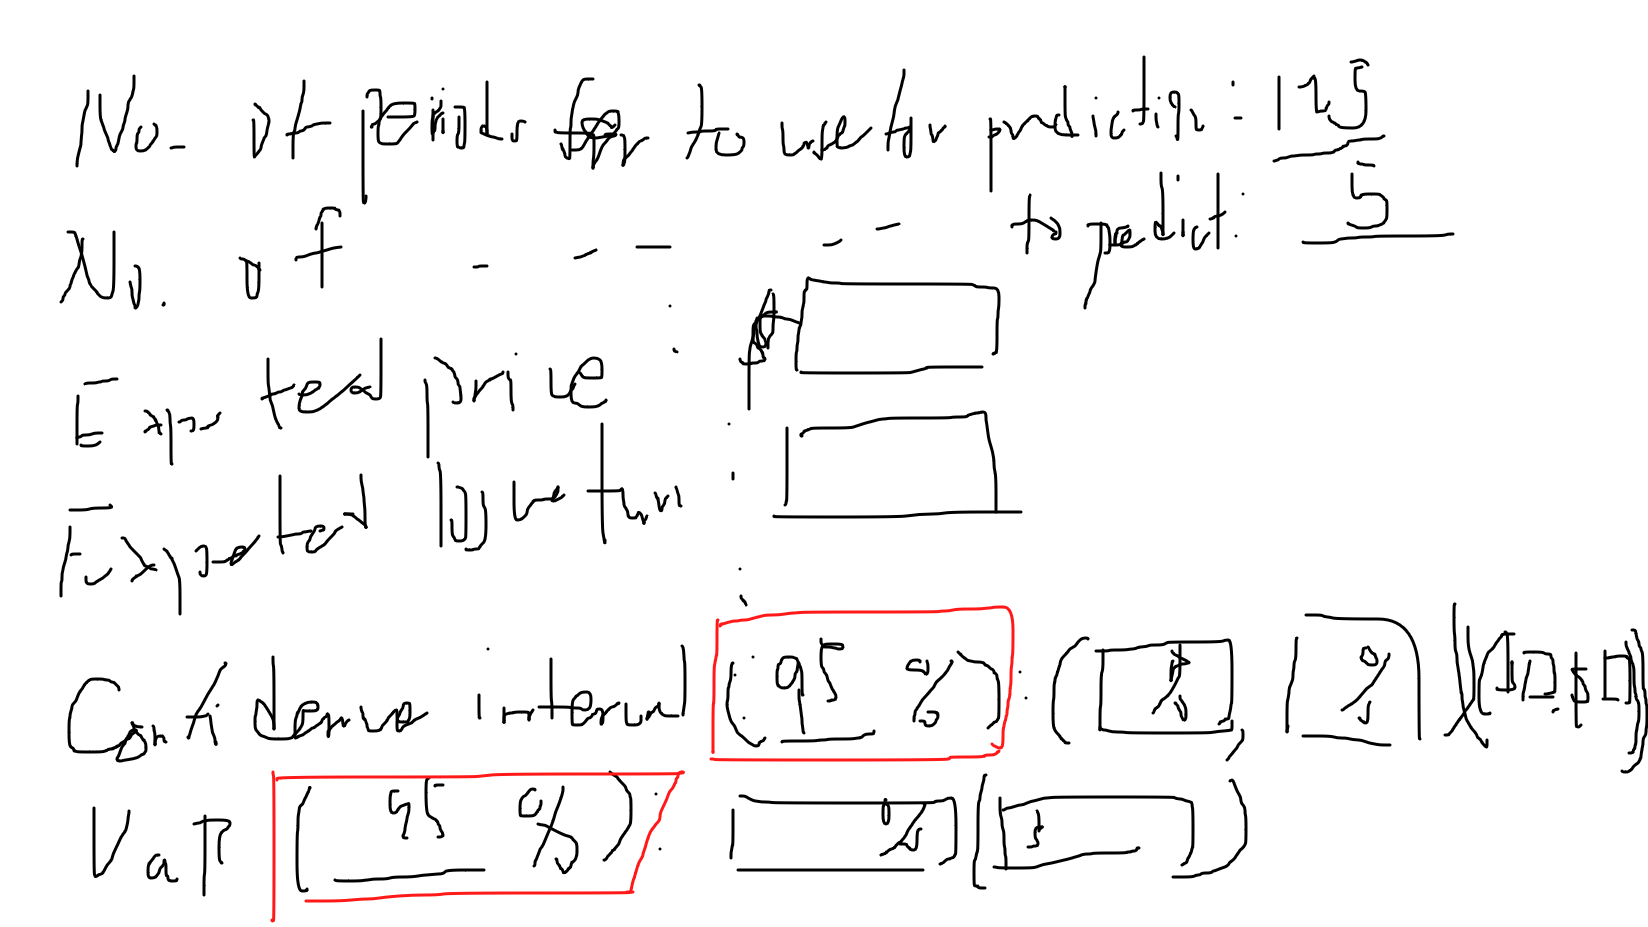 No. of periods for to use for prediction: 125
No. of - - - - - to predict: 5
Expected price :
Expected log return :
Confidence interval (95 %) : ( %, % ) ($ , $ )
VaR (95 %) : % ($ )